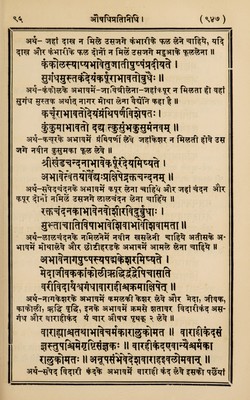 ९६ औषधिप्रतिनिधि । (९४७)
अर्थ–जहां दाख न मिलै उसजगे कंभारीके फल लेने चाहिये, यदि
दाख और कंभारीके फल दोनों न मिलें उसजगे महुआके फूललेना ॥
कंकोलस्याप्यभावेतुजातीपुष्पंप्रदीयते ॥
सुगंधमुस्तकंदेयंकर्पूराभावतोबुधैः ॥
अर्थ–कंकोलके अभावमें-जावित्रीलेना । जहांकपूर न मिलता ही वहां
सुगंध मुस्तक अर्थात् नागर मोथा लेना वैद्योंने कहा है ॥
कर्चूराभावतोदेयंग्रंथिपर्णविशेषतः ॥
कुंकुमाभावतो दद्यात्कुसुंभकुसुमंनवम् ॥
अर्थ–कचूरके अभावमें ग्रंथिपर्णी लेवे जहांकेशर न मिलती होवे उस
जगे नवीन कुसुमका फूल लेवे ॥
श्रीखंडचन्दनाभावेकर्पूरंदेयमिष्यते ।
अभावेत्वेतयोर्वैद्यःप्रक्षिपेद्रक्तचन्दनम् ॥
अर्थ–सपेदचंदनके अभावमें कपूर लेना चाहिये और जहांचंदन और
कपूर दोनों नमिलें उसजगे लालचंदन लेना चाहिये ॥
रक्तचंदनकाभावेनवोशीरंविदुर्बुधाः ।
मुस्ताचातिविषाभावेशिवाभावेशिवामता ॥
अर्थ–लालचंदनके नमिलनेमें नवीन खसलेनी चाहिये अतीसके अ-
भावमें मोथालेवे और छोटीहरडके अभावमें आमले लेना चाहिये ॥
अभावेनागपुष्पस्यपद्मकेशरमिष्यते ।
मेदाजीवककाकोलीऋद्धिद्वंद्वेपिचासति
वरीविदार्यश्वगंधावाराहीश्चक्रमात्क्षिपेत् ॥
अर्थ–नागकेशरके अभावमें कमलकी केशर लेवे और मेदा, जीवक,
काकोली, ऋद्धि वृद्धि, इनके अभावमें क्रमसे शतावर विदारीकंद अस-
गंध और वाराहीकंद ये चार औषध पृथक् २ लेवे ॥
वाराह्याश्चतथाभावेचर्मकारालुकोमतः ॥ वाराहीकंदसं
ज्ञस्तुपश्चिमेगृष्टिसंज्ञकः ॥ वाराहीकंदएवान्यैश्चर्मका
रालुकोमतः ॥ अनूपसंभवेदेशेवाराहइवलोमवान् ॥
अर्थ–सपेद विदारी कंदके अभावमें वाराही कंद लेवे इसका पर्याय